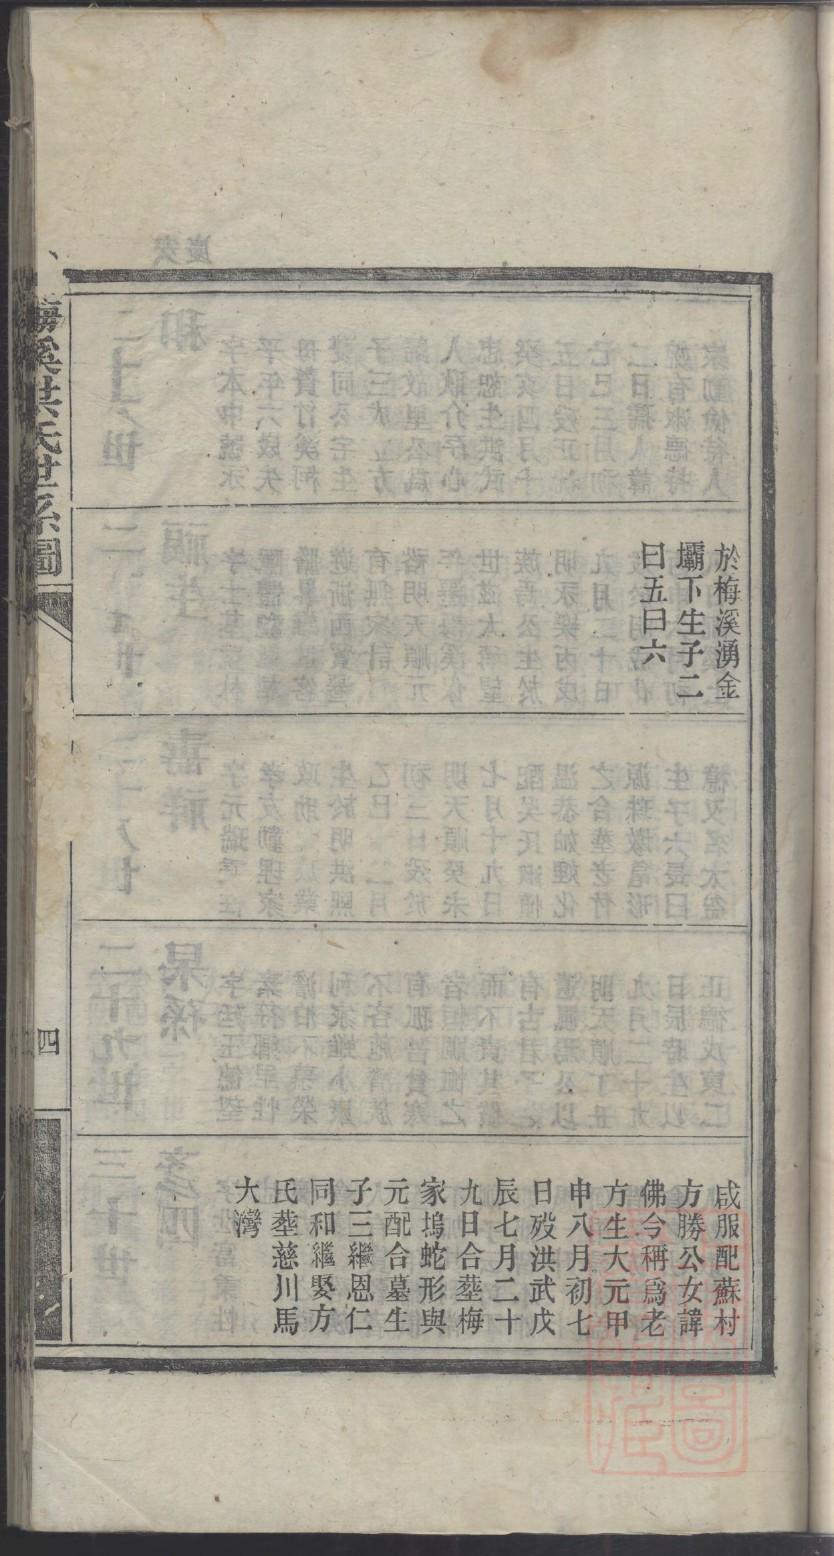 梅溪洪氏世系圖
四
於梅溪湧金
壩下生子二
曰五曰六
咸服配蘇村
方勝公女諱
佛今稱爲老
方生大元甲
申八月初七
日歿洪武戊
辰七月二十
九日合塟梅
家塢蛇形與
元配合墓生
子三繼恩仁
同和繼娶方
氏塟慈川馬
大灣